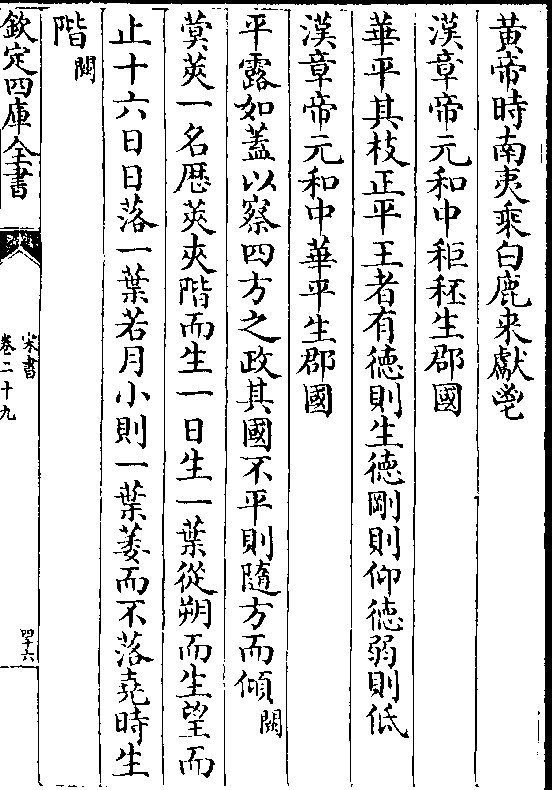 黄帝時南夷乘白鹿来獻鬯
漢章帝元和中秬秠生郡國
華平其枝正平王者有徳則生徳剛則仰徳弱則低
漢章帝元和中華平生郡國
平露如蓋以察四方之政其國不平則隨方而傾闕
蓂莢一名歴莢夾階而生一日生一葉從朔而生望而
止十六日日落一葉若月小則一葉萎而不落堯時生
階闕
欽定四庫全書
宋書
卷二十九
四十六